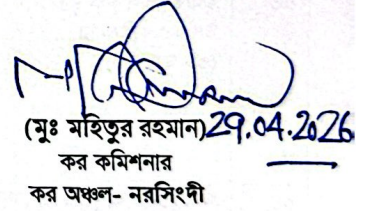 (মুঃ মহিতুর রহমান) 29.04.2026
কর কমিশনার
কর অঞ্চল- নরসিংদী